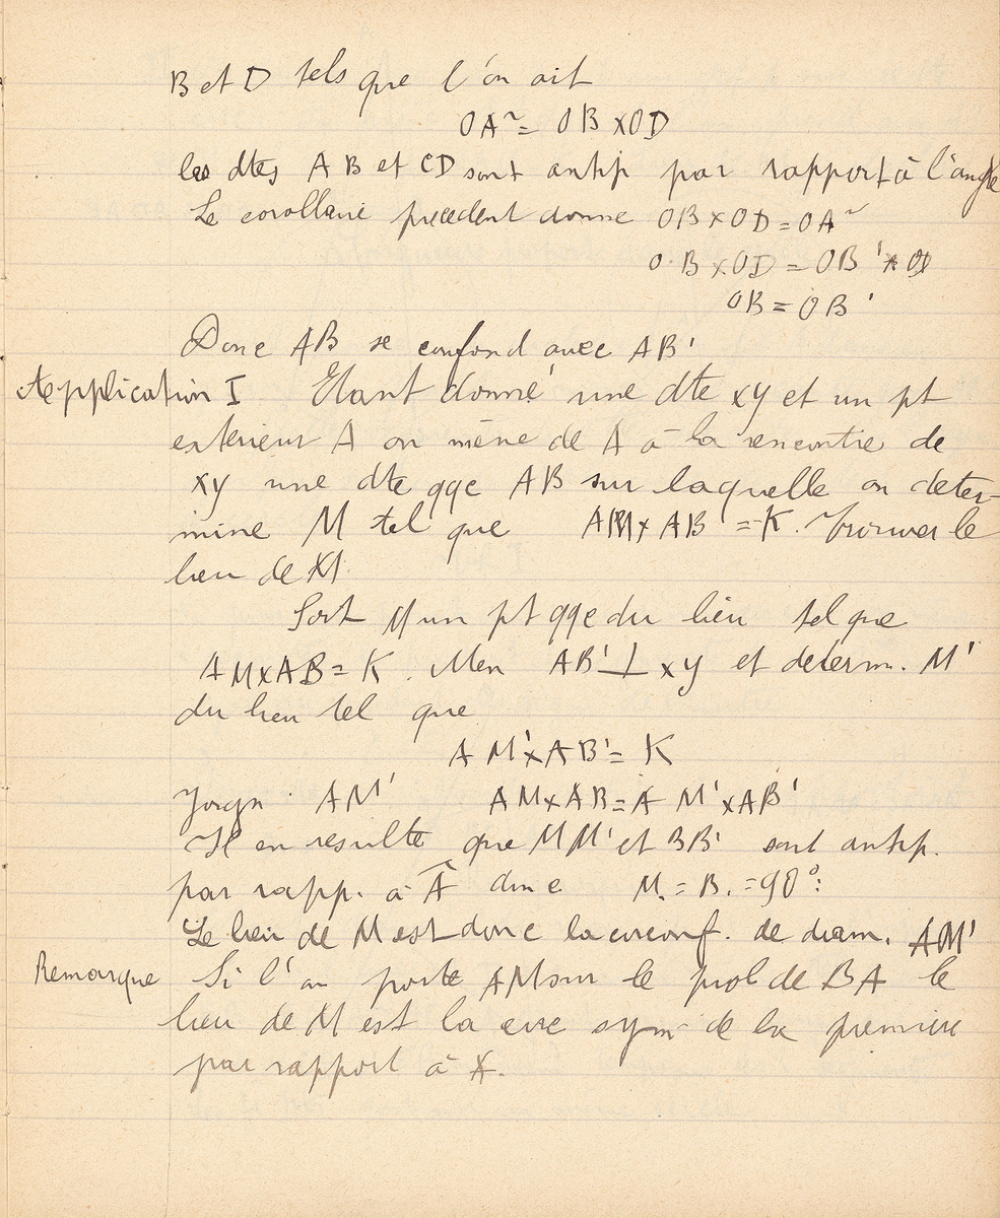 B et D tels que l'on ait
OA² = OB × OD
les dtes AB et CD sont antip par rapport à l'angle
Le corollaire precedent donne OB × OD = OA²
OB × OD = OB' × OD
OB = OB'
Donc AB se confond avec AB'
Application I Etant donné une dte xy et un pt
exterieur A on mène de A à la rencontre de
xy une dte qqe AB sur laquelle on deter-
mine M tel que AM × AB = K. Trouver le
lieu de M
Soit M un pt qqe du lieu tel que
AM × AB = K. Men AB' ⊥ xy et determ. M'
du lieu tel que
AM' × AB' = K
Joign AM' AM × AB = AM' × AB'
Il en resulte que MM' et BB' sont antip.
par rapp. à Â donc M. = B. = 90°
Le lieu de M est donc la circonf. de diam. AM'
Remarque Si l'on porte AM sur le prol de BA le
lieu de M est la circ sym de la premiere
par rapport à A.